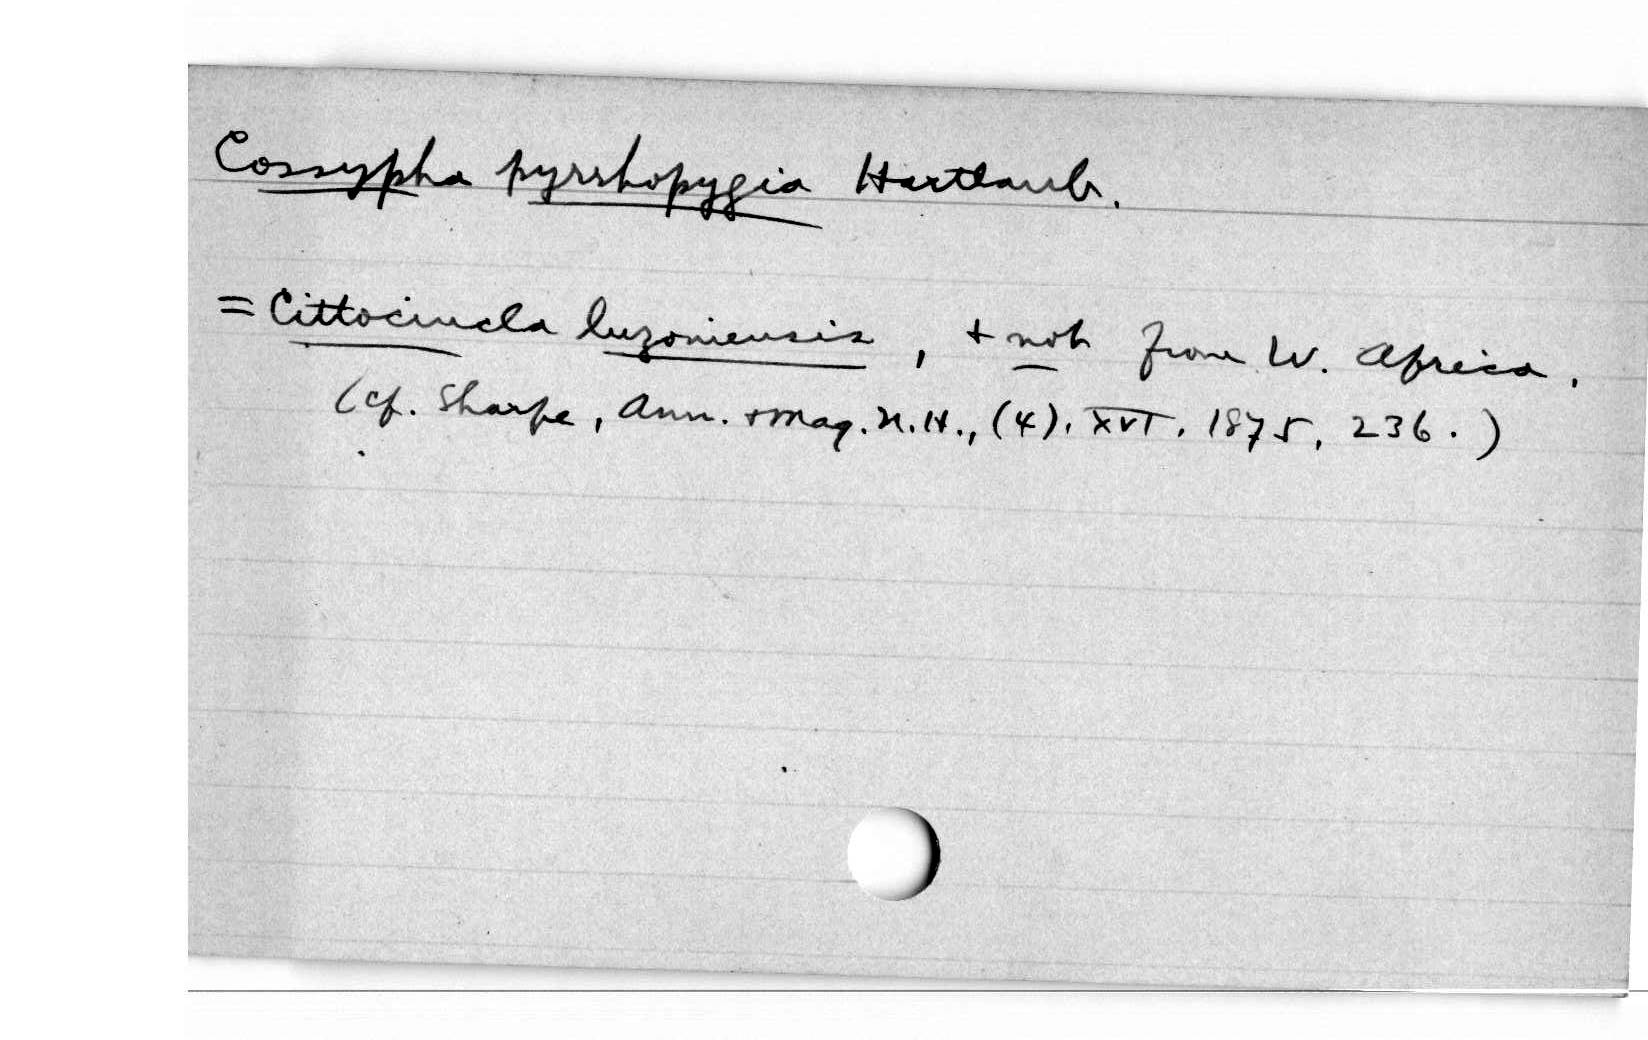 Cossypha pyrrhopygia Hartlaub.
= Cittocincla luzoniensis, + not from W. Africa.
(cf. Sharpe, Ann. + Mag. N. H., (4). XVI. 1875, 236.)